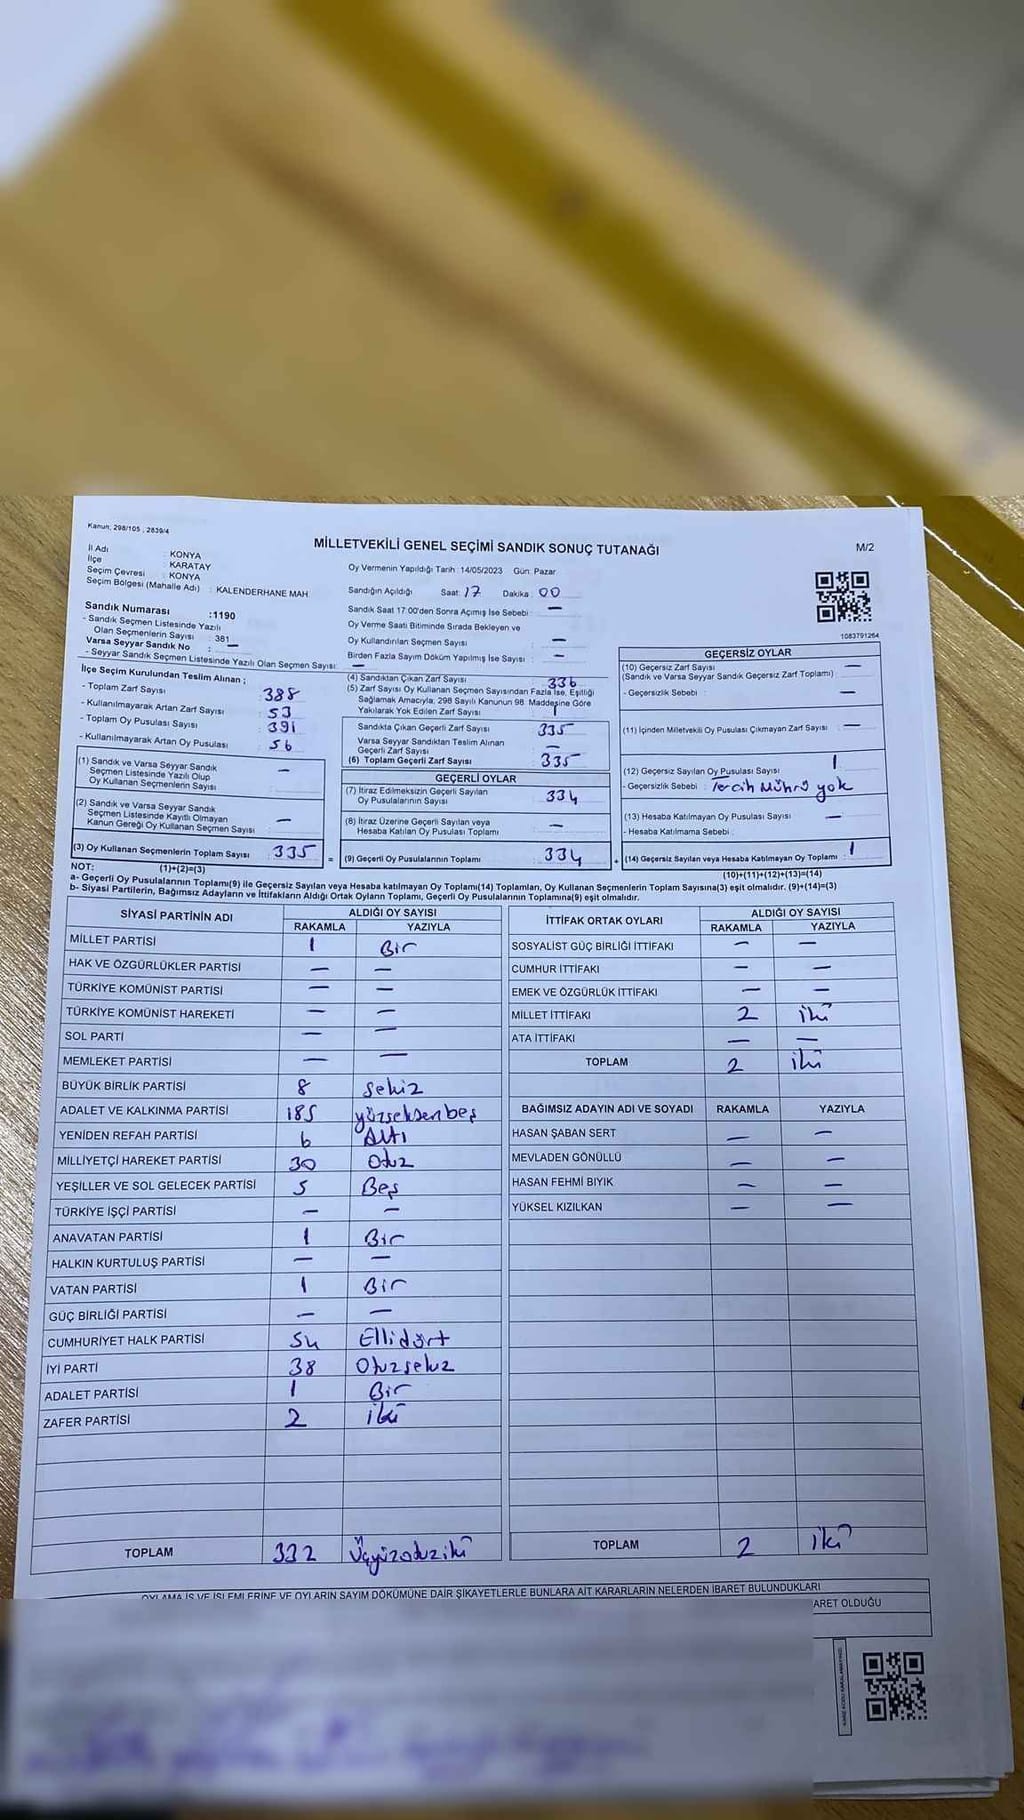 Kanun: 298/105 , 2839/4
MİLLETVEKİLİ GENEL SEÇİMİ SANDIK SONUÇ TUTANAĞI
M/2
İl Adı : KONYA
İlçe : KARATAY
Seçim Çevresi : KONYA
Seçim Bölgesi (Mahalle Adı) : KALENDERHANE MAH
Sandık Numarası :1190
- Sandık Seçmen Listesinde Yazılı
Olan Seçmenlerin Sayısı : 381
Varsa Seyyar Sandık No : —
- Seyyar Sandık Seçmen Listesinde Yazılı Olan Seçmen Sayısı: —
Oy Vermenin Yapıldığı Tarih : 14/05/2023 Gün: Pazar
Sandığın Açıldığı Saat: 17 Dakika : 00
Sandık Saat 17:00'den Sonra Açımış İse Sebebi : —
Oy Verme Saati Bitiminde Sırada Bekleyen ve
Oy Kullandırılan Seçmen Sayısı : —
Birden Fazla Sayım Döküm Yapılmış İse Sayısı : —
1083791264
İlçe Seçim Kurulundan Teslim Alınan ;
- Toplam Zarf Sayısı : 388
- Kullanılmayarak Artan Zarf Sayısı : 53
- Toplam Oy Pusulası Sayısı : 391
- Kullanılmayarak Artan Oy Pusulası : 56
(1) Sandık ve Varsa Seyyar Sandık
Seçmen Listesinde Yazılı Olup
Oy Kullanan Seçmenlerin Sayısı : —
(2) Sandık ve Varsa Seyyar Sandık
Seçmen Listesinde Kayıtlı Olmayan
Kanun Gereği Oy Kullanan Seçmen Sayısı : —
(3) Oy Kullanan Seçmenlerin Toplam Sayısı : 335
(1)+(2)=(3)
(4) Sandıktan Çıkan Zarf Sayısı : 336
(5) Zarf Sayısı Oy Kullanan Seçmen Sayısından Fazla İse, Eşitliği
Sağlamak Amacıyla, 298 Sayılı Kanunun 98. Maddesine Göre
Yakılarak Yok Edilen Zarf Sayısı : 1
Sandıkta Çıkan Geçerli Zarf Sayısı : 335
Varsa Seyyar Sandıktan Teslim Alınan
Geçerli Zarf Sayısı : —
(6) Toplam Geçerli Zarf Sayısı : 335
GEÇERLİ OYLAR
(7) İtiraz Edilmeksizin Geçerli Sayılan
Oy Pusulalarının Sayısı : 334
(8) İtiraz Üzerine Geçerli Sayılan veya
Hesaba Katılan Oy Pusulası Toplamı : —
= (9) Geçerli Oy Pusulalarının Toplamı : 334
GEÇERSİZ OYLAR
(10) Geçersiz Zarf Sayısı : —
(Sandık ve Varsa Seyyar Sandık Geçersiz Zarf Toplamı)
- Geçersizlik Sebebi : —
(11) İçinden Milletvekili Oy Pusulası Çıkmayan Zarf Sayısı : —
(12) Geçersiz Sayılan Oy Pusulası Sayısı : 1
- Geçersizlik Sebebi : Tercih Mührü yok
(13) Hesaba Katılmayan Oy Pusulası Sayısı : —
- Hesaba Katılmama Sebebi :
+ (14) Geçersiz Sayılan veya Hesaba Katılmayan Oy Toplamı : 1
(10)+(11)+(12)+(13)=(14)
NOT:
a- Geçerli Oy Pusulalarının Toplamı(9) ile Geçersiz Sayılan veya Hesaba katılmayan Oy Toplamı(14) Toplamları, Oy Kullanan Seçmenlerin Toplam Sayısına(3) eşit olmalıdır. (9)+(14)=(3)
b- Siyasi Partilerin, Bağımsız Adayların ve İttifakların Aldığı Ortak Oyların Toplamı, Geçerli Oy Pusulalarının Toplamına(9) eşit olmalıdır.
SİYASİ PARTİNİN ADI ALDIĞI OY SAYISI
RAKAMLA YAZIYLA
MİLLET PARTİSİ 1 Bir
HAK VE ÖZGÜRLÜKLER PARTİSİ — —
TÜRKİYE KOMÜNİST PARTİSİ — —
TÜRKİYE KOMÜNİST HAREKETİ — —
SOL PARTİ — —
MEMLEKET PARTİSİ — —
BÜYÜK BİRLİK PARTİSİ 8 sekiz
ADALET VE KALKINMA PARTİSİ 185 yüzseksenbeş
YENİDEN REFAH PARTİSİ 6 Altı
MİLLİYETÇİ HAREKET PARTİSİ 30 Otuz
YEŞİLLER VE SOL GELECEK PARTİSİ 5 Beş
TÜRKİYE İŞÇİ PARTİSİ — —
ANAVATAN PARTİSİ 1 Bir
HALKIN KURTULUŞ PARTİSİ — —
VATAN PARTİSİ 1 Bir
GÜÇ BİRLİĞİ PARTİSİ — —
CUMHURİYET HALK PARTİSİ 54 Ellidört
İYİ PARTİ 38 Otuzsekiz
ADALET PARTİSİ 1 Bir
ZAFER PARTİSİ 2 iki
TOPLAM 332 Üçyüzotuziki
İTTİFAK ORTAK OYLARI ALDIĞI OY SAYISI
RAKAMLA YAZIYLA
SOSYALİST GÜÇ BİRLİĞİ İTTİFAKI — —
CUMHUR İTTİFAKI — —
EMEK VE ÖZGÜRLÜK İTTİFAKI — —
MİLLET İTTİFAKI 2 iki
ATA İTTİFAKI — —
TOPLAM 2 iki
BAĞIMSIZ ADAYIN ADI VE SOYADI RAKAMLA YAZIYLA
HASAN ŞABAN SERT — —
MEVLADEN GÖNÜLLÜ — —
HASAN FEHMİ BIYIK — —
YÜKSEL KIZILKAN — —
TOPLAM 2 iki
OYLAMA İŞ VE İŞLEMLERİNE VE OYLARIN SAYIM DÖKÜMÜNE DAİR ŞİKAYETLERLE BUNLARA AİT KARARLARIN NELERDEN İBARET BULUNDUKLARI
ARET OLDUĞU